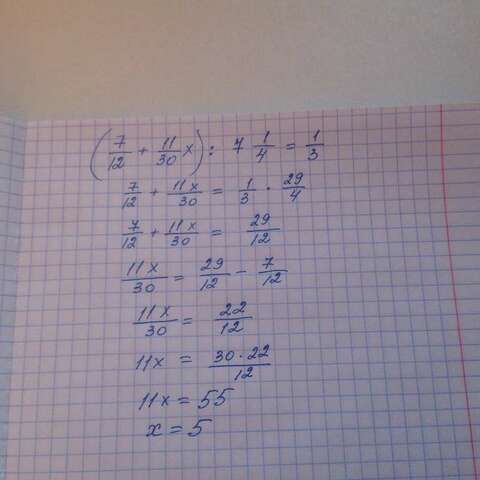 (7/12 + 11/30 x) : 7 1/4 = 1/3
7/12 + 11x/30 = 1/3 · 29/4
7/12 + 11x/30 = 29/12
11x/30 = 29/12 - 7/12
11x/30 = 22/12
11x = 30·22/12
11x = 55
x = 5